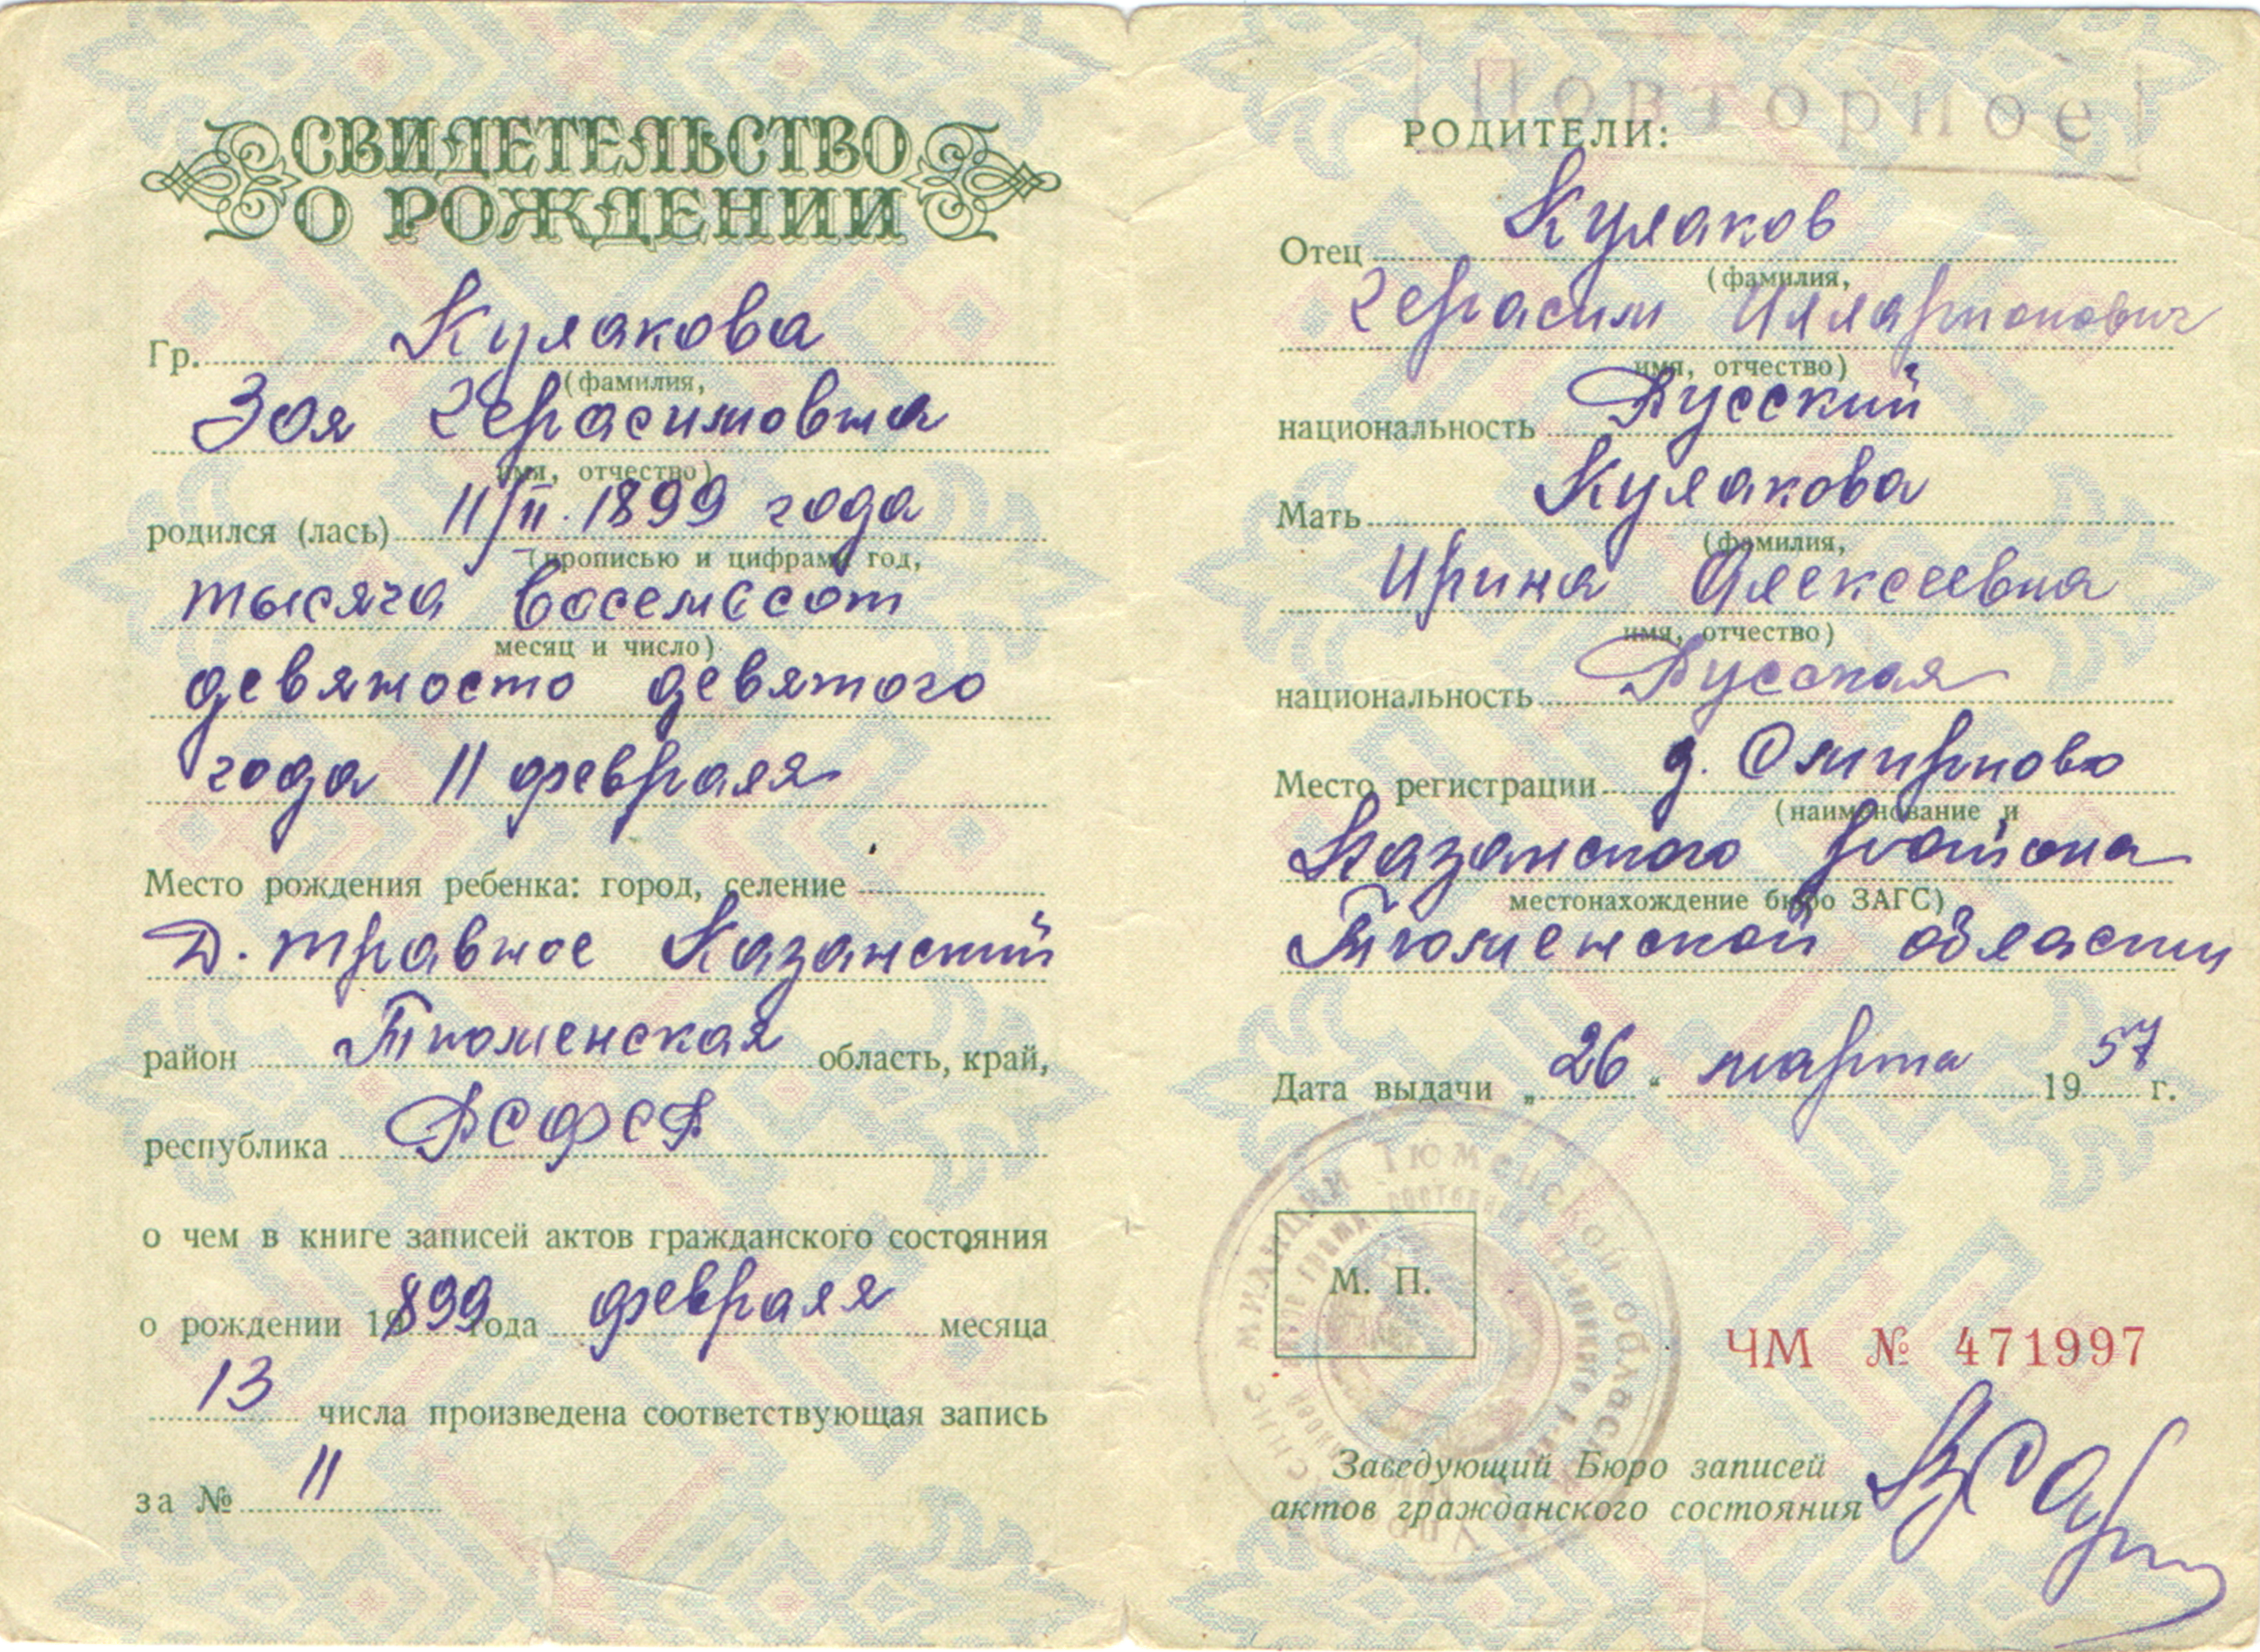 СВИДЕТЕЛЬСТВО
О РОЖДЕНИИ
Гр. Кулакова
(фамилия,
Зоя Герасимовна
имя, отчество)
родился (лась) 11/II. 1899 года
(прописью и цифрами год,
тысяча восемьсот
месяц и число)
девяносто девятого
года 11 февраля
Место рождения ребенка: город, селение
д. Травное Казанский
район Тюменская область, край,
республика РСФСР
о чем в книге записей актов гражданского состояния
о рождении 1899 года февраля месяца
13 числа произведена соответствующая запись
за № 11
Повторное
РОДИТЕЛИ:
Отец Кулаков
(фамилия,
Герасим Илларионович
имя, отчество)
национальность Русский
Мать Кулакова
(фамилия,
Ирина Алексеевна
имя, отчество)
национальность Русская
Место регистрации д. Смирново
(наименование и
Казанского района
местонахождение бюро ЗАГС)
Тюменской области
Дата выдачи „26“ марта 1957 г.
МИЛИЦИИ ТЮМЕНСКОЙ ОБЛАСТИ
М. П.
ЧМ № 471997
Заведующий Бюро записей
актов гражданского состояния